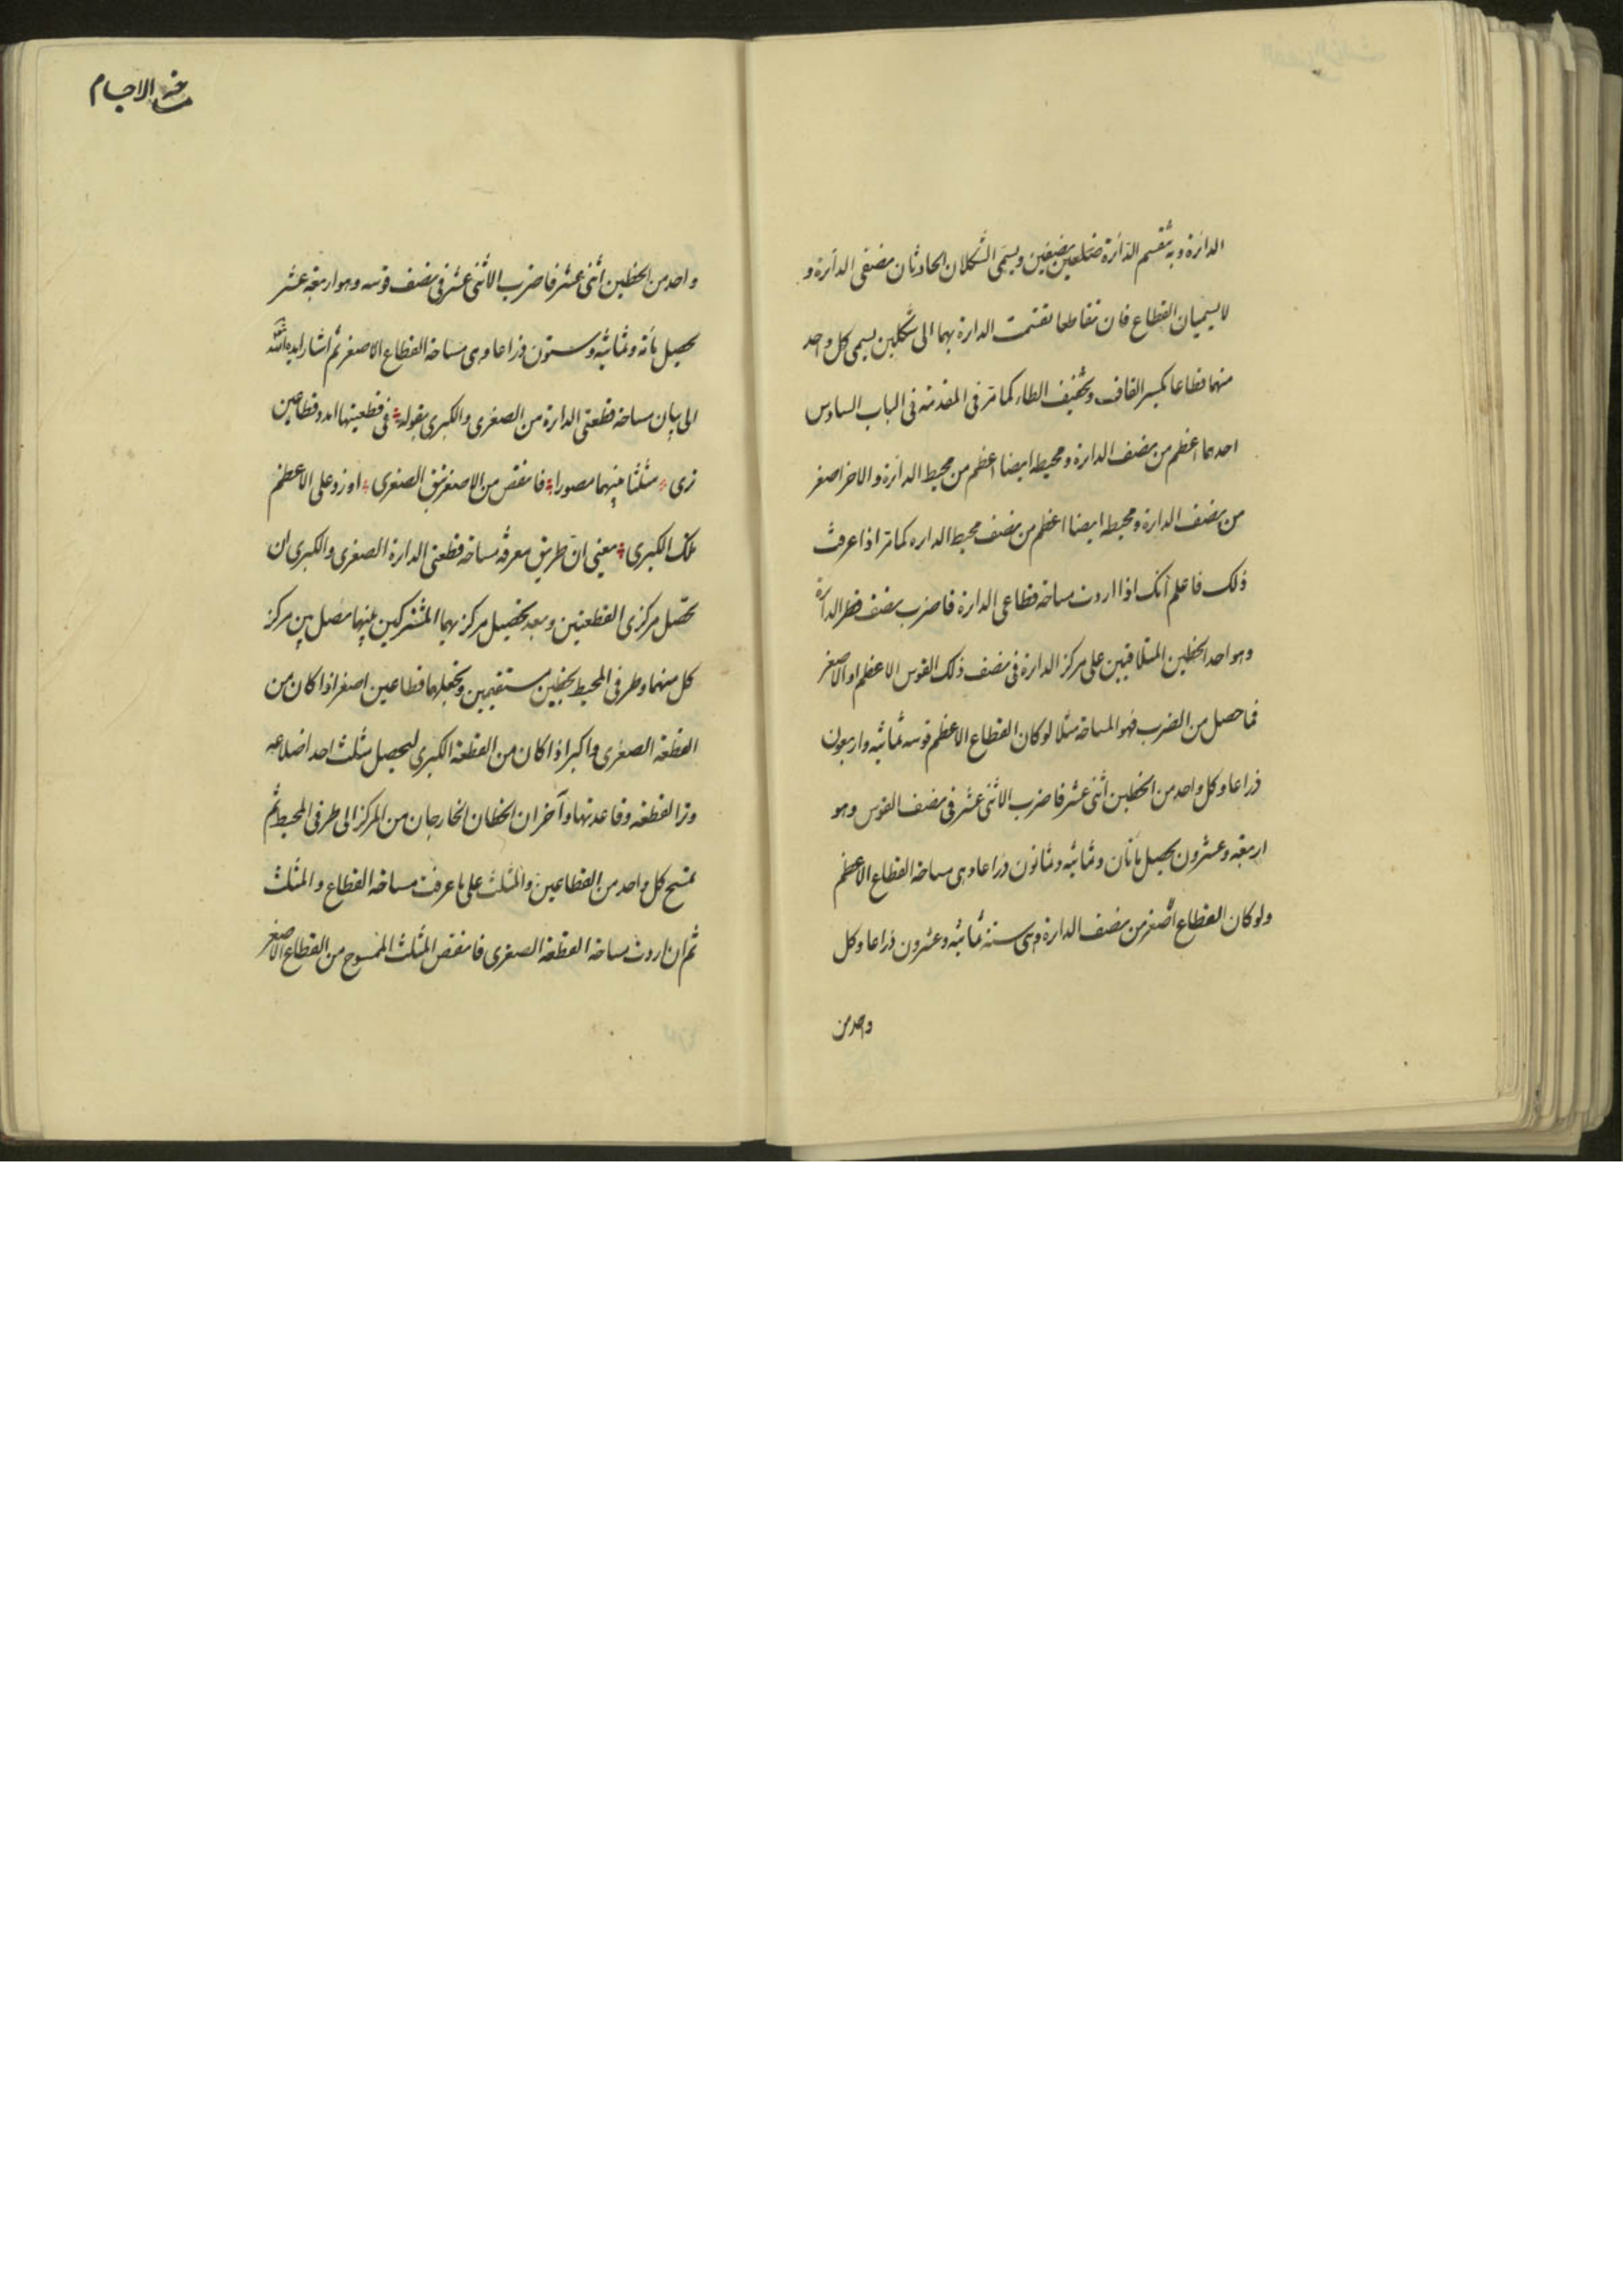 الدائرة وبه تنقسم الدائرة ضلعين نصفين ويسمى الشكلان الحادثان نصفى الدائرة و
لا يسميان القطاع فان تقاطعا تقسمت الدائرة بهما الى شكلين يسمى كل واحد
منهما قطاعا بكسر القاف وتخفيف الطاء كما مر فى المقدمة فى الباب السادس
احدهما اعظم من نصف الدائرة ومحيطه ايضا اعظم من محيط الدائرة والاخر اصغر
من نصف الدائرة ومحيطه ايضا اعظم من نصف محيط الداره كما مر اذا عرفت
ذلك فاعلم انك اذا اردت مساحة قطاعى الدائرة فاضرب نصف قطر الدائرة
وهو احد الخطين المتلاقيين على مركز الدائرة فى نصف ذلك القوس الاعظم او الاصغر
فما حصل من الضرب فهو المساحة مثلا لو كان القطاع الاعظم قوسه ثمانية واربعون
ذراعا وكل واحد من الخطين اثنى عشر فاضرب الاثنى عشر فى نصف القوس وهو
اربعة وعشرون يحصل مأتان وثمانية وثمانون ذراعا وهى مساحة القطاع الاعظم
ولو كان القطاع اصغر من نصف الدائرة وهى ثمانية وعشرون ذراعا وكل
واحد من
مساحة الاجسام
واحد من الخطين اثنى عشر فاضرب الاثنى عشر فى نصف قوسه وهو اربعة عشر
يحصل مأة وثمانية وستون ذراعا وهى مساحة القطاع الاصغر ثم اشار ايده الله
الى بيان مساحة قطعتى الدائرة من الصغرى والكبرى بقوله فى قطعيتها امدد قطاعين
ترى مثلثا بينهما مصورا فانقص من الاصغر تبق الصغرى او زد على الاعظم
تلك الكبرى يعنى ان طريق معرفة مساحة قطعتى الدائرة الصغرى والكبرى ان
تحصل مركزى القطعتين وبعد تحصيل مركزيهما المشتركين بينهما تصل بين مركز
كل منهما وطرفى المحيط بخطين مستقيمين وتجعلهما قطاعين اصغر اذا كان من
القطعة الصغرى واكبر اذا كان من القطعة الكبرى ليحصل مثلث احد اضلاعه
وتر القطعة وقاعدتها وآخران الخطان الخارجان من المركز الى طرفى المحيط ثم
تمسح كل واحد من القطاعين والمثلث على ما عرفت مساحة القطاع والمثلث
ثم ان اردت مساحة القطعة الصغرى فانقص المثلث الممسوح من القطاع الاصغر